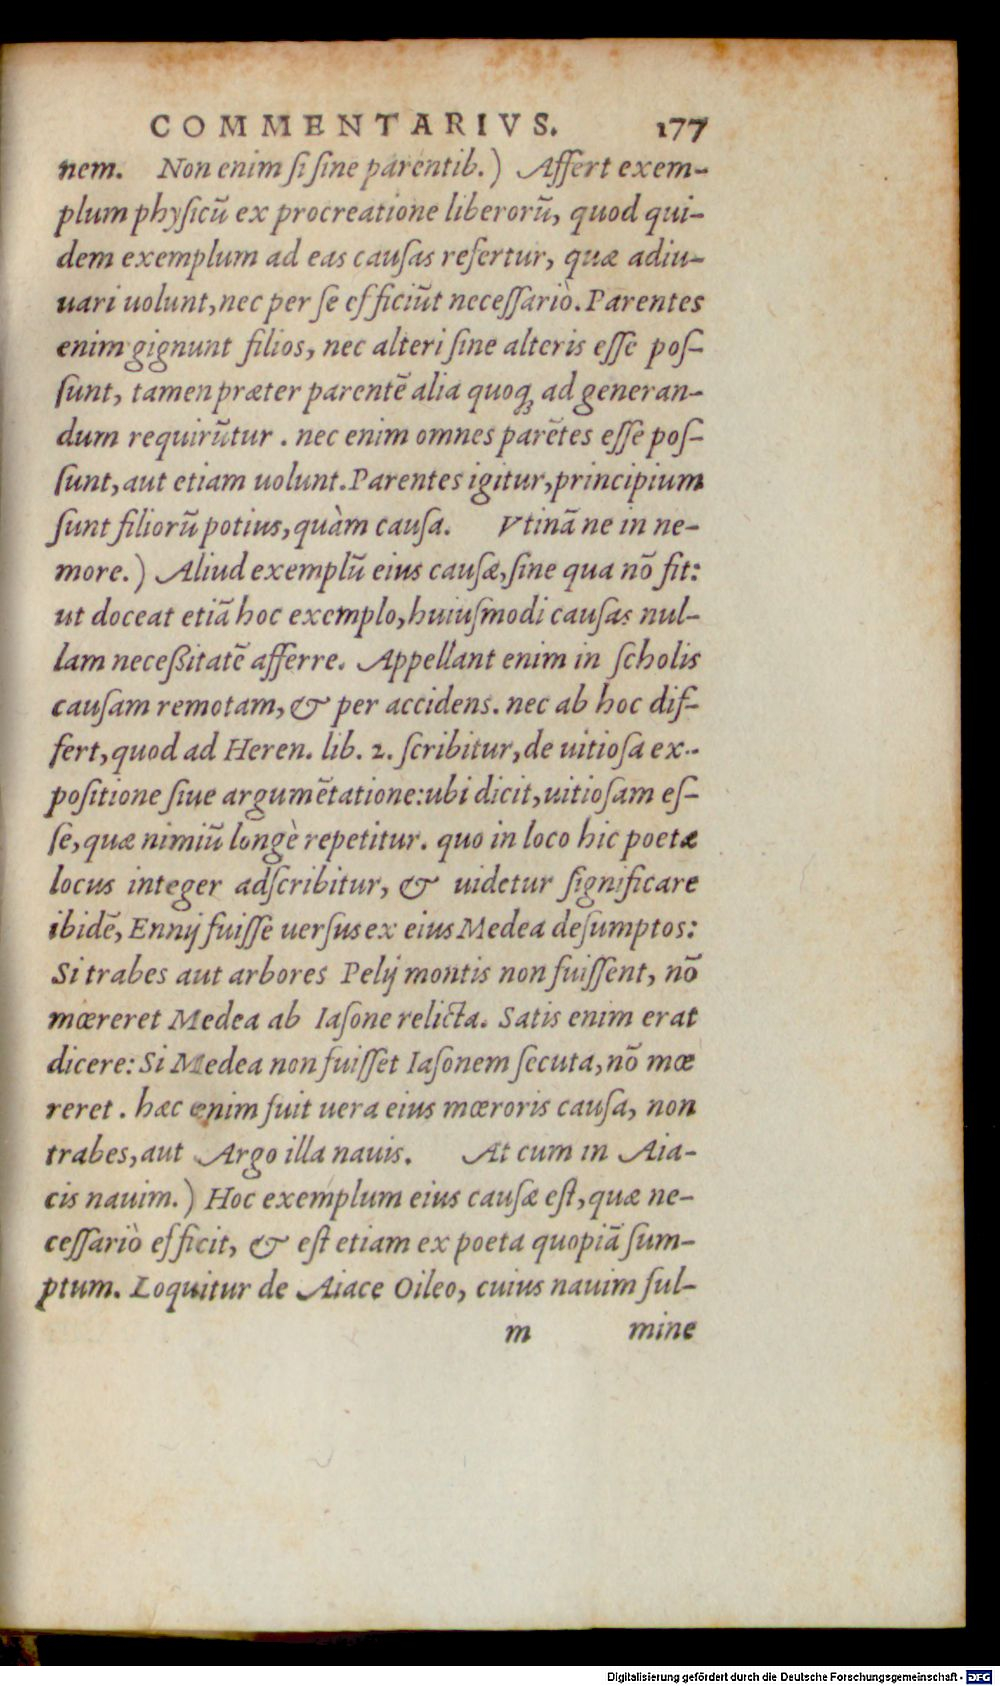 COMMENTARIVS. 177
nem. Non enim ſi ſine parentib.) Affert exem-
plum phyſicũ ex procreatione liberorũ, quod qui-
dem exemplum ad eas cauſas refertur, quæ adiu-
uari uolunt, nec per ſe efficiũt neceſſariò. Parentes
enim gignunt filios, nec alteri ſine alteris eſſe poſ-
ſunt, tamen præter parentẽ alia quoqꝫ ad generan-
dum requirũtur. nec enim omnes parẽtes eſſe poſ-
ſunt, aut etiam uolunt. Parentes igitur, principium
ſunt filiorũ potius, quàm cauſa. Vtinã ne in ne-
more.) Aliud exemplũ eius cauſæ, ſine qua nõ fit:
ut doceat etiã hoc exemplo, huiuſmodi cauſas nul-
lam neceßitatẽ afferre. Appellant enim in ſcholis
cauſam remotam, & per accidens. nec ab hoc dif-
fert, quod ad Heren. lib. 2. ſcribitur, de uitioſa ex-
poſitione ſiue argumẽtatione: ubi dicit, uitioſam eſ-
ſe, quæ nimiũ longè repetitur. quo in loco hic poetæ
locus integer adſcribitur, & uidetur ſignificare
ibidẽ, Ennij fuiſſe uerſus ex eius Medea deſumptos:
Si trabes aut arbores Pelij montis non fuiſſent, nõ
mœreret Medea ab Iaſone relicta. Satis enim erat
dicere: Si Medea non fuiſſet Iaſonem ſecuta, nõ mœ
reret. hæc enim fuit uera eius mœroris cauſa, non
trabes, aut Argo illa nauis. At cum in Aia-
cis nauim.) Hoc exemplum eius cauſæ eſt, quæ ne-
ceſſariò efficit, & eſt etiam ex poeta quopiã ſum-
ptum. Loquitur de Aiace Oileo, cuius nauim ful-
m mine
Digitalisierung gefördert durch die Deutsche Forschungsgemeinschaft - DFG